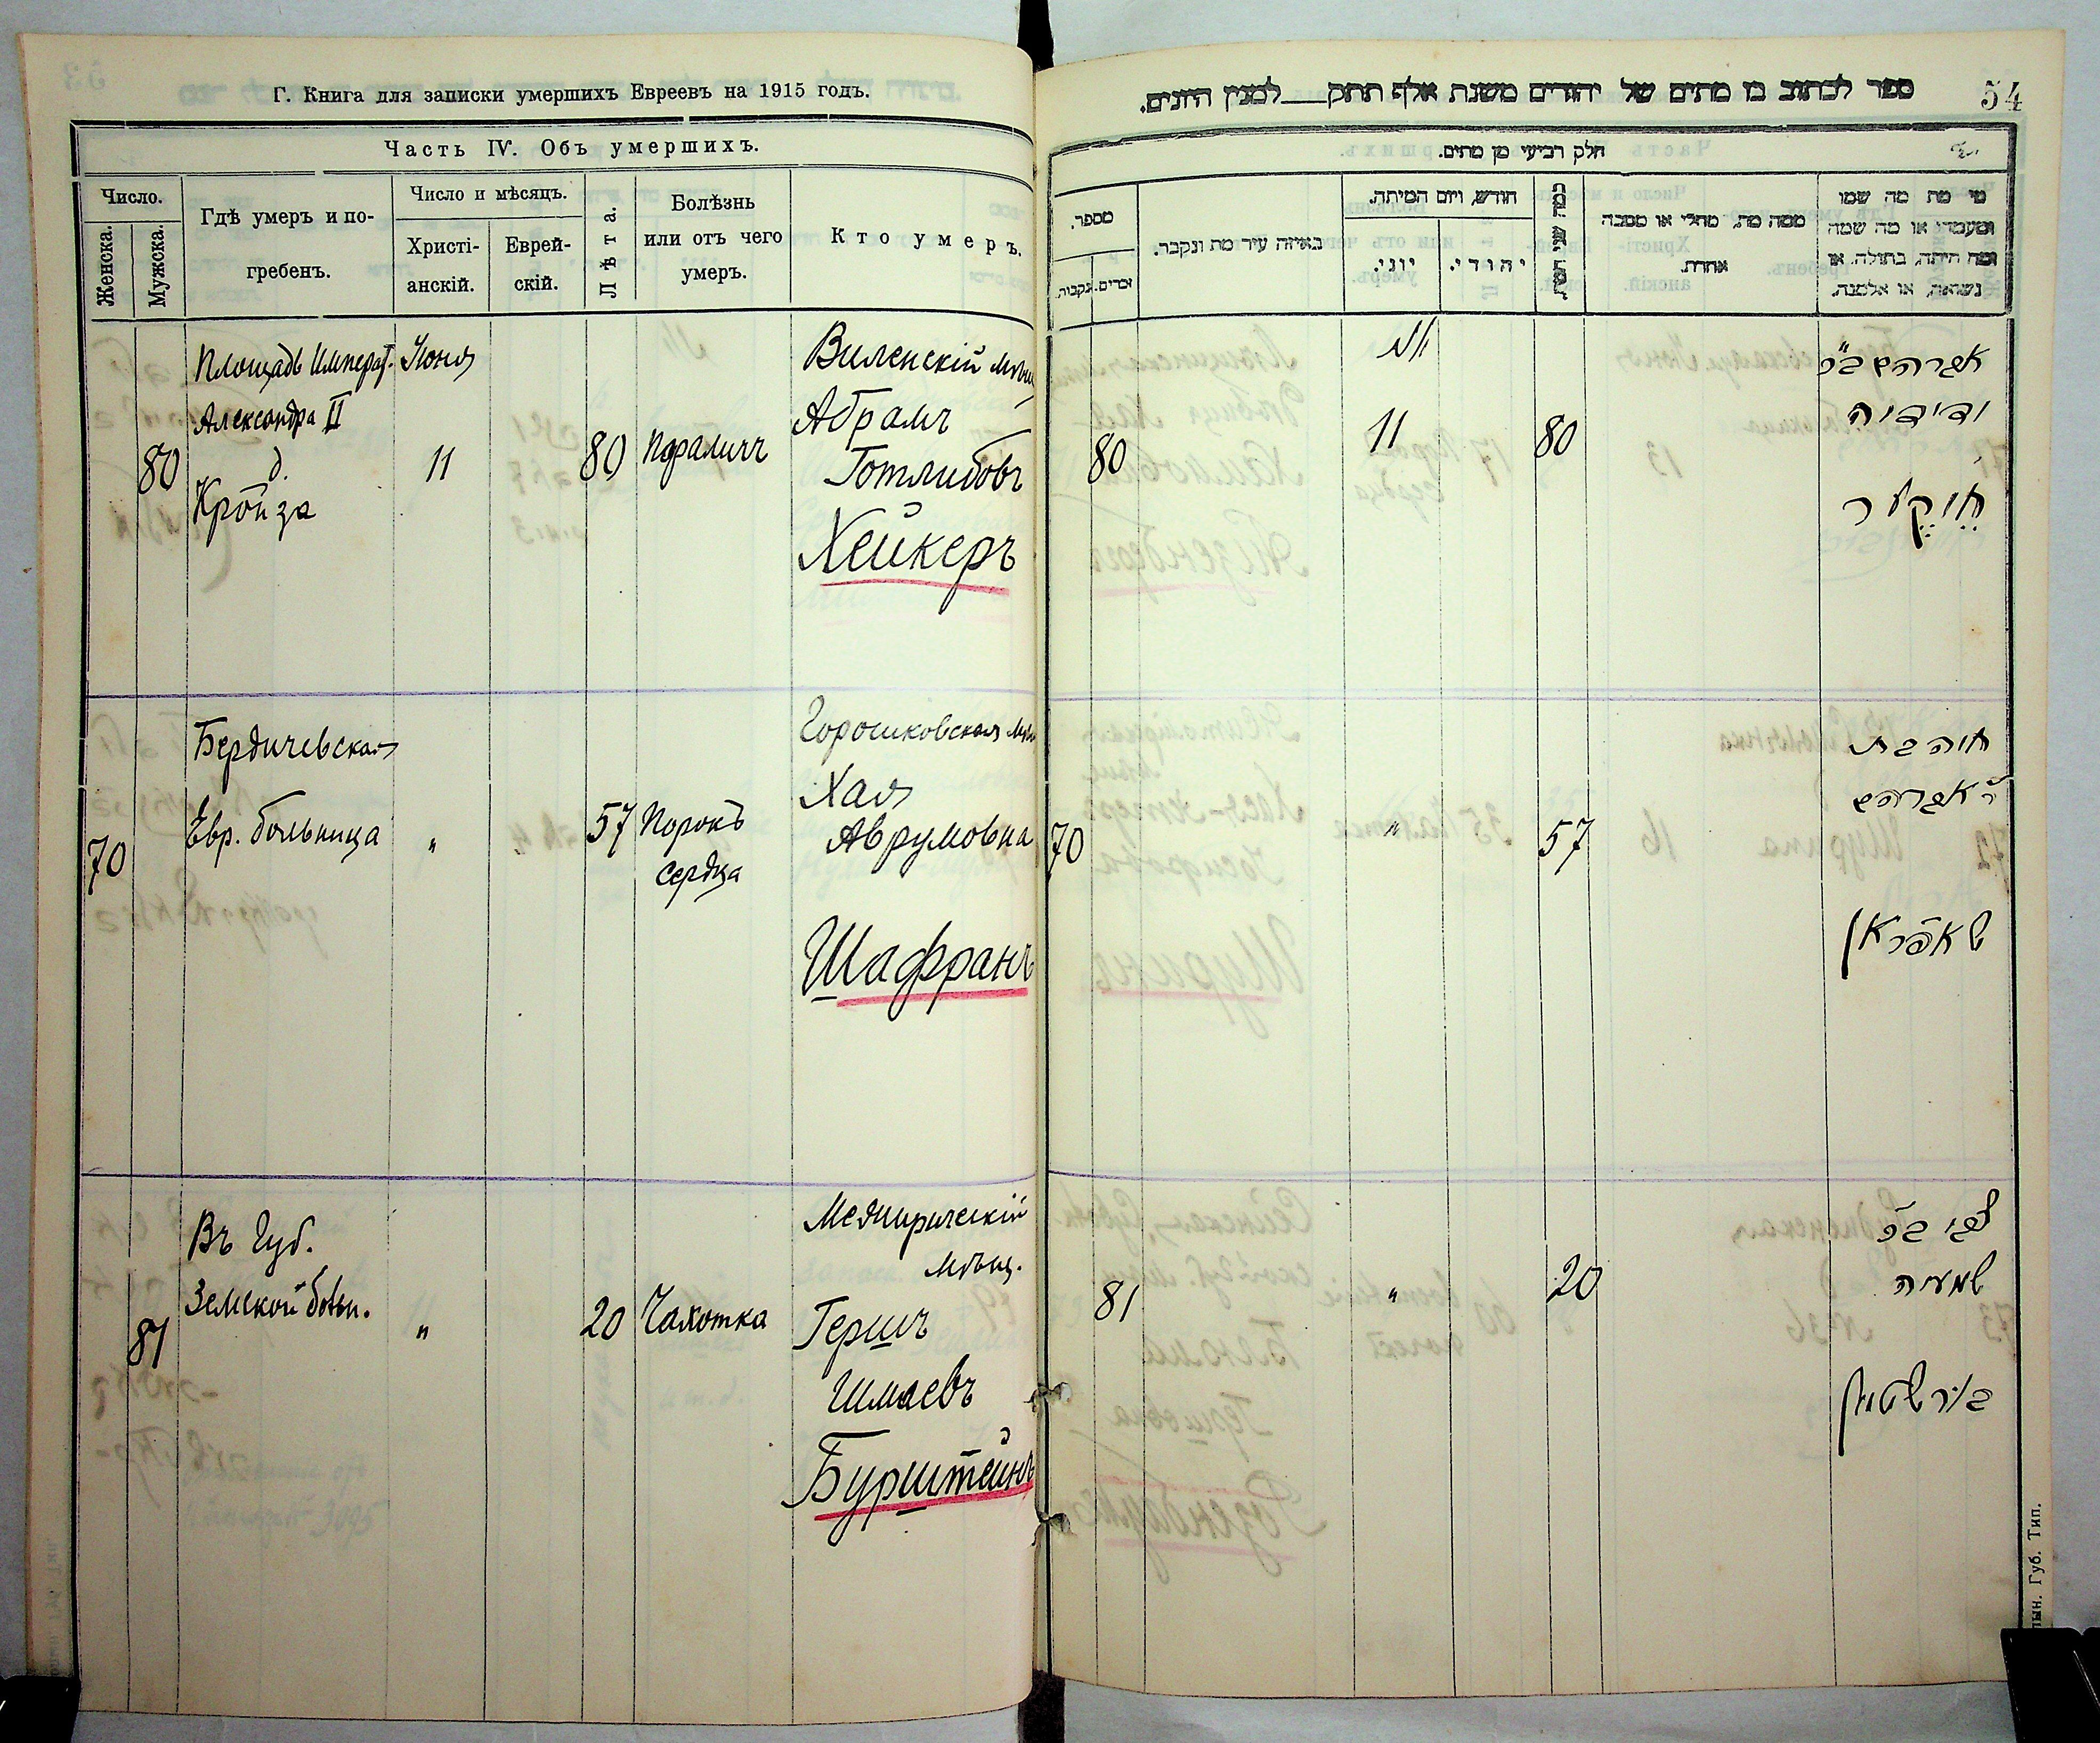 Г. Книга для записки умершихъ Евреевъ на 1915 годъ.
Часть IV. Объ умершихъ.
Число.
Женска.
Мужска.
Гдѣ умеръ и по-
гребенъ.
Число и мѣсяцъ.
Христі-
анскій.
Еврей-
скій.
Лѣта.
Болѣзнь
или отъ чего
умеръ.
Кто умеръ.
80
Площадь Императ.
Александра II
д.
Іюня
11
80
Виленскій мѣщ
Абрамъ
Готлибовъ
Хейкеръ
70
Бердичевская
Евр. больница
"
57
Порокъ
сердца
Горошковская
Хая
Аврумовна
Шафранъ
81
Въ Губ.
Земской больн.
"
20
Чахотка
Межиричскій
мѣщ.
Гершъ
Шмаевъ
Бурштейнъ
ספר לכתוב בו מתים של יהודים משנת אלף תתק למנין היונים.
54
חלק רביעי מן מתים.
מספר.
נקבות.
זכרים.
באיזה עיר מת ונקבר.
חודש, ויום המיתה.
יוני.
יהודי.
ממה מת, מחלי או מסבה
אחרת.
מי מת מה שמו
ומעמדו או מה שמה
ומה היתה, בתולה, או
נשואה, או אלמנה.
80
11
80
אברהם ב״ר
ידידיה
70
"
57
חיה בת
ר׳ אברהם
שאפראן
81
"
20
צבי ב״ר
שמעיה
בורשטיין
Губ. Тип.